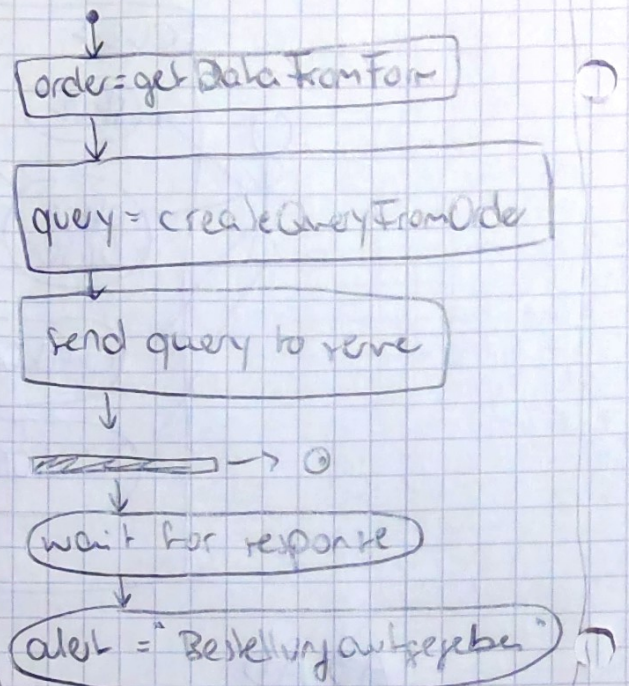 order=getDataFromForm
query= createQueryFromOrder
send query to server
wait for response
alert ="Bestellung aufgegeben"